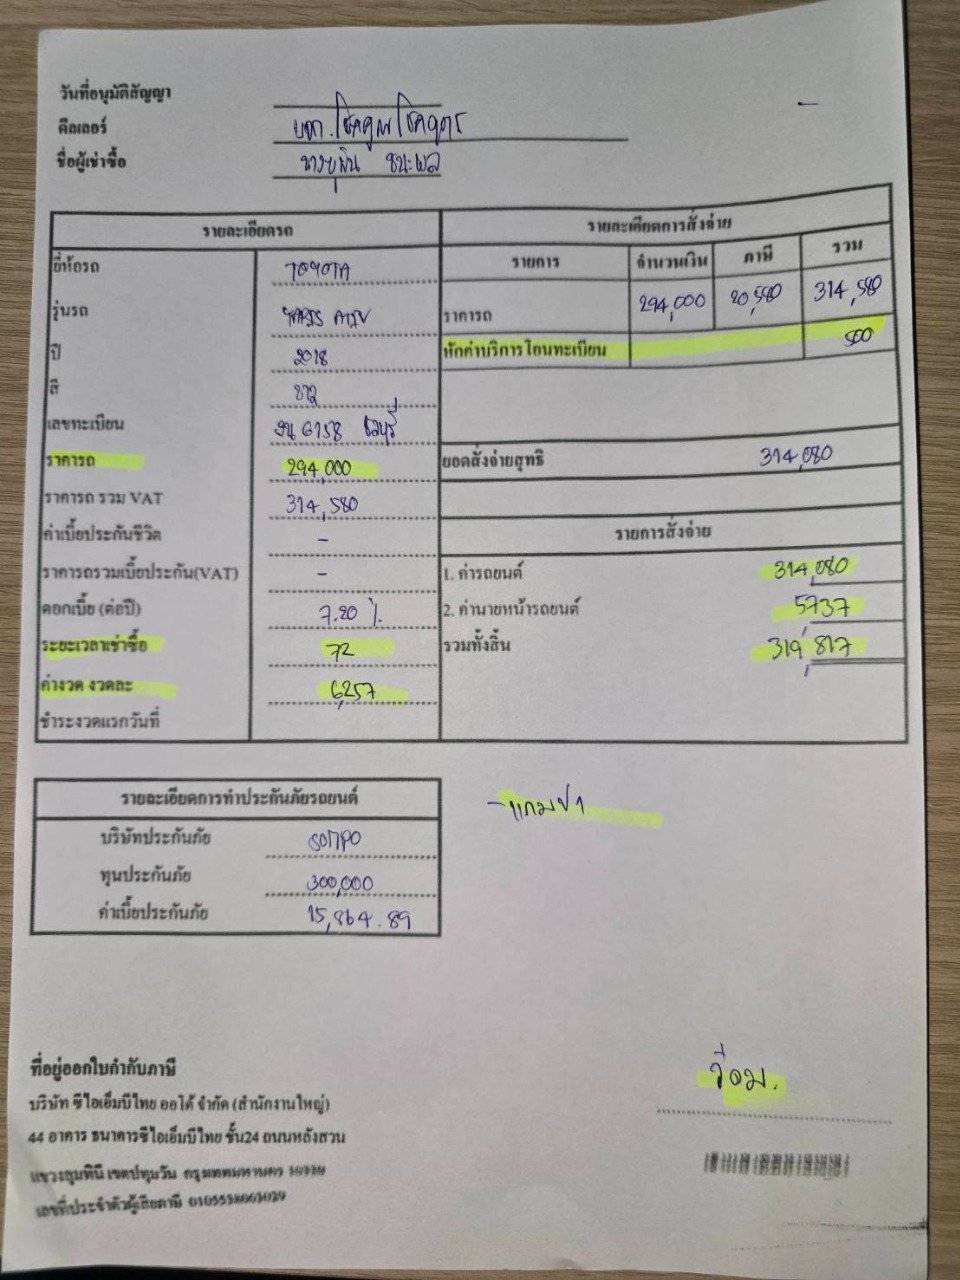 วันที่อนุมัติสัญญา
ดีลเลอร์ บจก.โชคคูณโชคจูตร
ชื่อผู้เช่าซื้อ ชนะพล
รายละเอียดรถ
ยี่ห้อรถ TOYOTA
รุ่นรถ YARIS ATIV
ปี 2018
สี ขาว
เลขทะเบียน 6158 ชลบุรี
ราคารถ 294,000
ราคารถ รวม VAT 314,580
ค่าเบี้ยประกันชีวิต -
ราคารถรวมเบี้ยประกัน(VAT) -
ดอกเบี้ย (ต่อปี) 7.20 %
ระยะเวลาเช่าซื้อ 72
ค่างวด งวดละ 6,257
ชำระงวดแรกวันที่
รายละเอียดการสั่งจ่าย
รายการ จำนวนเงิน ภาษี รวม
ราคารถ 294,000 20,580 314,580
หักค่าบริการโอนทะเบียน 500
ยอดสั่งจ่ายสุทธิ 314,080
รายการสั่งจ่าย
1. ค่ารถยนต์ 314,080
2. ค่านายหน้ารถยนต์ 5,737
รวมทั้งสิ้น 319,817
รายละเอียดการทำประกันภัยรถยนต์
บริษัทประกันภัย SOMPO
ทุนประกันภัย 300,000
ค่าเบี้ยประกันภัย 15,864.89
ที่อยู่ออกใบกำกับภาษี
บริษัท ซีไอเอ็มบีไทย ออโต้ จำกัด (สำนักงานใหญ่)
44 อาคาร ธนาคารซีไอเอ็มบีไทย ชั้น24 ถนนหลังสวน
แขวงลุมพินี เขตปทุมวัน กรุงเทพมหานคร 10330
เลขที่ประจำตัวผู้เสียภาษี 0105538003029